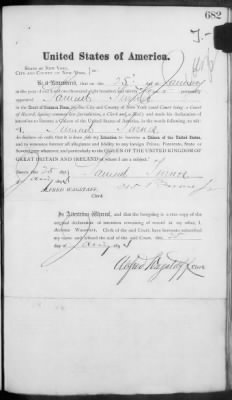 682
United States of America.
STATE OF NEW YORK,
CITY AND COUNTY OF NEW YORK,
Be it Remembered, that on the 25 day of January
in the year of our Lord one thousand eight hundred and
appeared Samuel Turner
in the Court of Common Pleas for the City and County of New York (said Court being a Court
of Record, having common law jurisdiction, a Clerk and a Seal) and made his declaration
of intention to become a Citizen of the United States, in the words following, to wit:
I, Samuel Turner
do declare on oath that it is bona fide my intention to become a Citizen of the United States,
and to renounce forever all allegiance and fidelity to any foreign Prince, Potentate, State or
Sovereignty whatever, and particularly to the QUEEN OF THE UNITED KINGDOM OF
GREAT BRITAIN AND IRELAND of whom I am a subject.
Sworn this 25 day Samuel Turner
of
ALFRED WAGSTAFF,
Clerk
In Attestation Whereof, and that the foregoing is a true copy of the
original declaration of intention remaining of record in my office, I,
ALFRED WAGSTAFF, Clerk of the said Court, have hereunto subscribed
my name and affixed the seal of the said Court, this 25
day of
Alfred Wagstaff Clerk